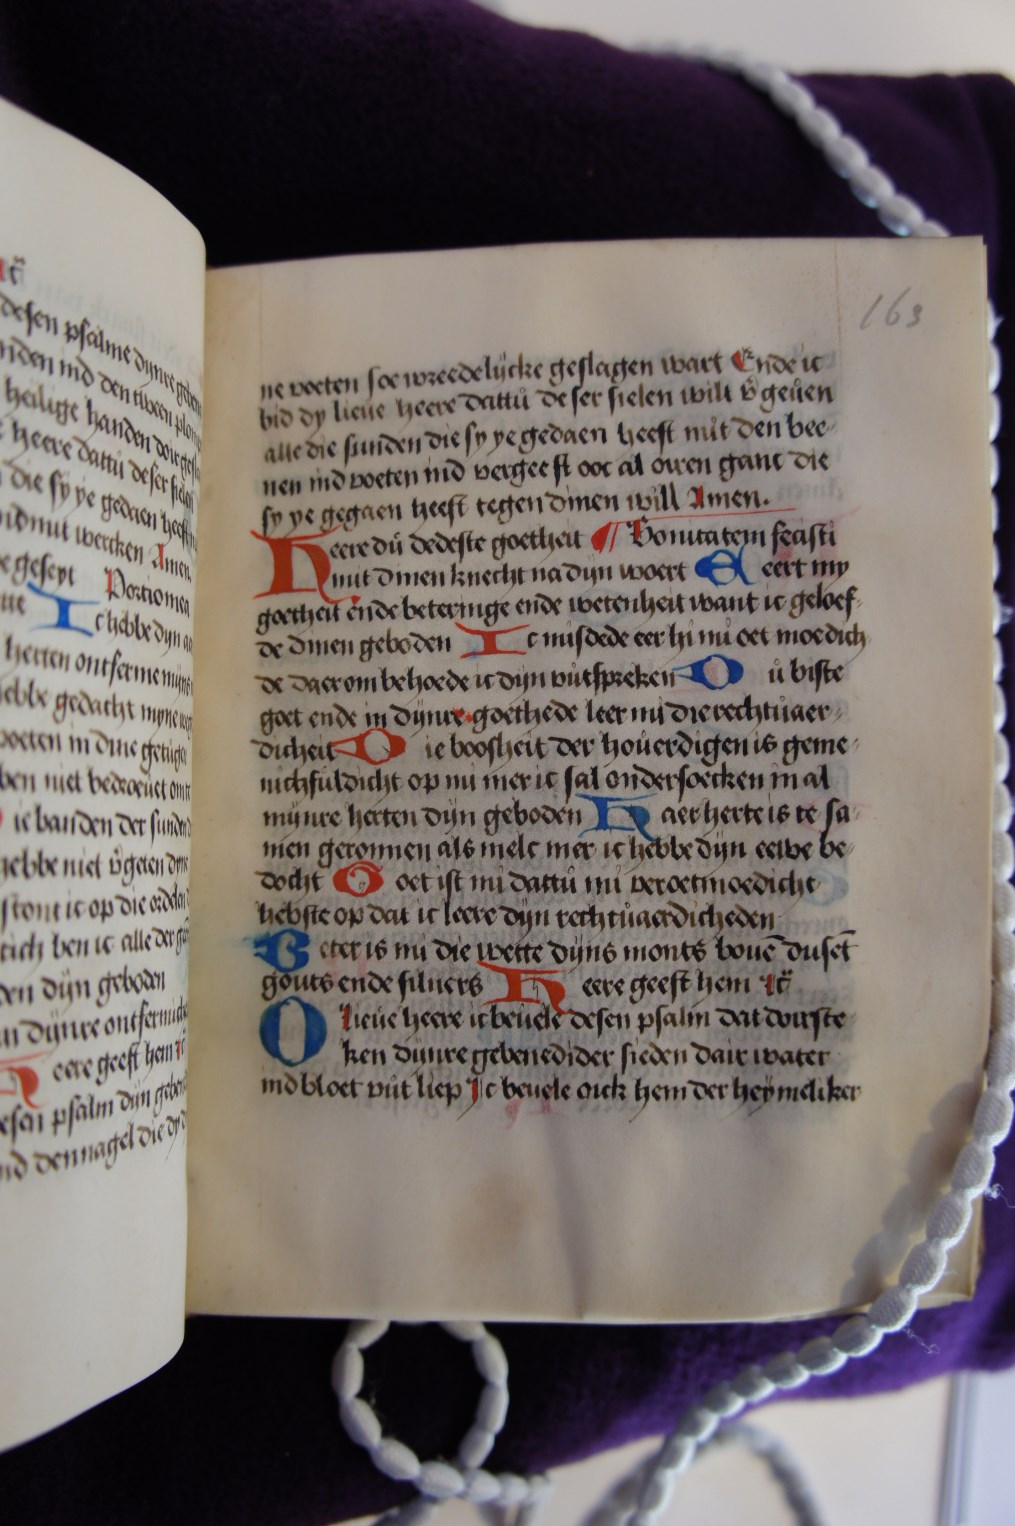 desen psalme dynre geben
nden ind den tween
heilige handen doir gesla
heere dattu deser sielen
die sy ye gedaen heeft
wercken Amen
gesept Portio mea
Ic hebbe dyn
herten ontferme myns
hebbe gedacht myne
voeten in dine getuge
ben niet bedroeuet om
ie banden der sunden
hebbe niet v̄geten dyne
stont ic op die ordelen
ich ben ic alle der
den dyn geboden
dynre ontfermich
eere geeft hem
desen psalm dyn geben
ind den nagel die
163
ne voeten soe wreedelijcke geslagen wart Ende ic
bid dy lieue heere dattu deser sielen wilt v̄geuen
alle die sunden die sy ye gedaen heeft mit den bee-
nen ind voeten ind vergeeft ooc al owen ganc die
sy ye gegaen heeft tegen dinen will Amen.
Heere du dedeste goetheit ¶ Bonitatem fecisti
mit dinen knecht na dijn woert Leert my
goetheit ende beteringe ende wetenheit want ic geloef-
de dinen geboden Ic misdede eer hi mi oet moedich
de daer om behoede ic dijn vutspreken Du biste
goet ende in dijnre goethede leer mi die rechtuaer-
dicheit Die boosheit der houerdigen is geme-
nichfuldicht op mi mer ic sal ondersoecken in al
mijnre herten dijn geboden Haer herte is te sa-
men geronnen als melc mer ic hebbe dijn eewe be-
docht Goet ist mi dattu mi veroetmoedicht
hebste op dat ic leere dijn rechtuaerdicheden
Beter is mi die wette dijns monts bouē dusēt
gouts ende siluers Heere geeft hem
O lieue heere ic beuele desen psalm dat doirste-
ken dijnre gebenedider sieden dair water
ind bloet vut liep Ic beuele oick hem der heymeliker